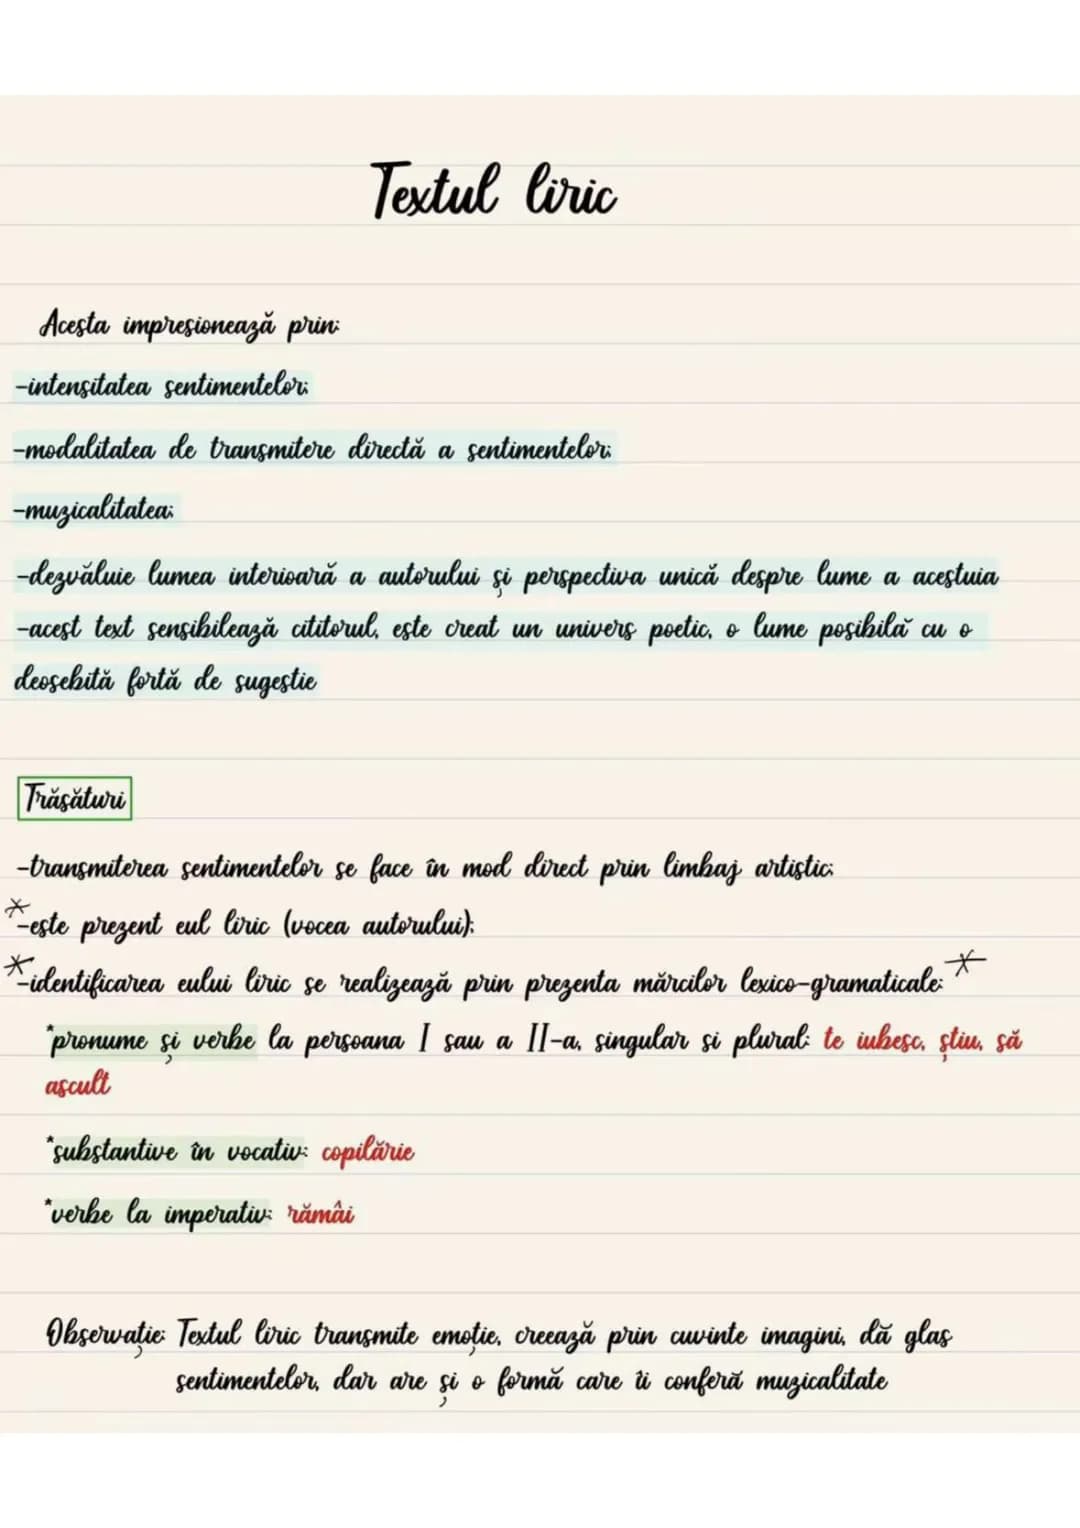 Textul liric
Acesta impresionează prin:
-intensitatea sentimentelor;
-modalitatea de transmitere directă a sentimentelor;
-muzicalitatea;
-dezvăluie lumea interioară a autorului și perspectiva unică despre lume a acestuia
-acest text sensibilează cititorul, este creat un univers poetic, o lume posibilă cu o
deosebită fortă de sugestie
Trăsături
-transmiterea sentimentelor se face în mod direct prin limbaj artistic;
*-este prezent eul liric (vocea autorului);
*-identificarea eului liric se realizează prin prezenta mărcilor lexico-gramaticale: *
*pronume și verbe la persoana I sau a II-a, singular si plural: te iubesc, știu, să
ascult
*substantive în vocativ: copilărie
*verbe la imperativ: rămâi
Observație: Textul liric transmite emoție, creează prin cuvinte imagini, dă glas
sentimentelor, dar are și o formă care îi conferă muzicalitate